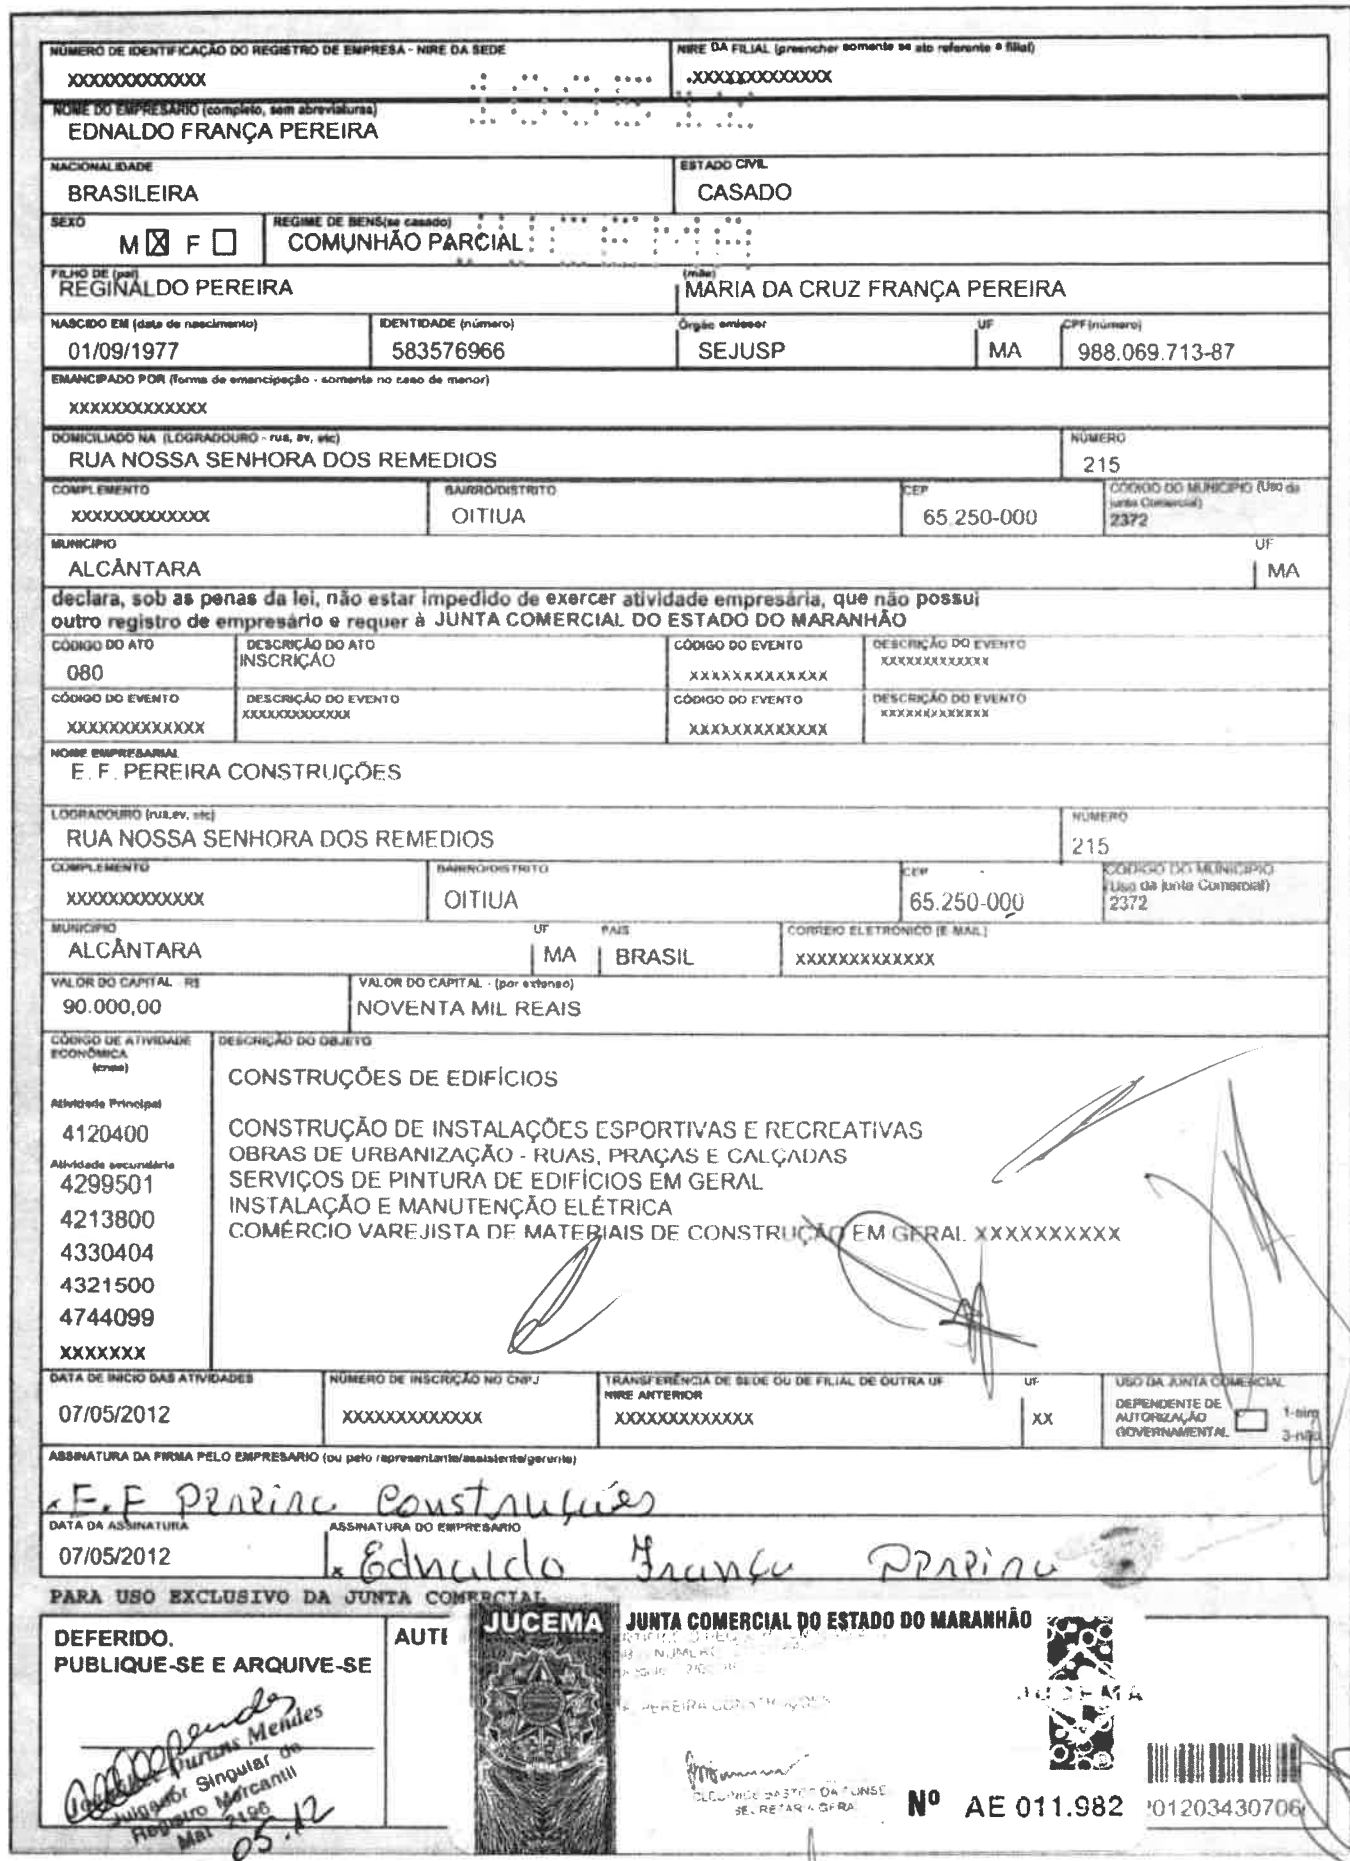 NÚMERO DE IDENTIFICAÇÃO DO REGISTRO DE EMPRESA - NIRE DA SEDE
XXXXXXXXXXXXX
NIRE DA FILIAL (preencher somente se ato referente a filial)
.XXXXXXXXXXXXX
NOME DO EMPRESÁRIO (completo, sem abreviaturas)
EDNALDO FRANÇA PEREIRA
NACIONALIDADE
BRASILEIRA
ESTADO CIVIL
CASADO
SEXO
M ☒ F ☐
REGIME DE BENS(se casado)
COMUNHÃO PARCIAL
JUCEMA
FILHO DE (pai)
REGINALDO PEREIRA
(mãe)
MARIA DA CRUZ FRANÇA PEREIRA
NASCIDO EM (data de nascimento)
01/09/1977
IDENTIDADE (número)
583576966
Órgão emissor
SEJUSP
UF
MA
CPF(número)
988.069.713-87
EMANCIPADO POR (forma de emancipação - somente no caso de menor)
XXXXXXXXXXXXX
DOMICILIADO NA (LOGRADOURO - rua, av, etc)
RUA NOSSA SENHORA DOS REMEDIOS
NÚMERO
215
COMPLEMENTO
XXXXXXXXXXXXX
BAIRRO/DISTRITO
OITIUA
CEP
65.250-000
CÓDIGO DO MUNICIPIO (Uso da
junta Comercial)
2372
MUNICIPIO
ALCÂNTARA
UF
MA
declara, sob as penas da lei, não estar impedido de exercer atividade empresária, que não possui
outro registro de empresário e requer à JUNTA COMERCIAL DO ESTADO DO MARANHÃO
CÓDIGO DO ATO
080
DESCRIÇÃO DO ATO
INSCRIÇÃO
CÓDIGO DO EVENTO
XXXXXXXXXXXXX
DESCRIÇÃO DO EVENTO
XXXXXXXXXXXXX
CÓDIGO DO EVENTO
XXXXXXXXXXXXX
DESCRIÇÃO DO EVENTO
XXXXXXXXXXXXX
CÓDIGO DO EVENTO
XXXXXXXXXXXXX
DESCRIÇÃO DO EVENTO
XXXXXXXXXXXXX
NOME EMPRESARIAL
E. F. PEREIRA CONSTRUÇÕES
LOGRADOURO (rua,av, etc)
RUA NOSSA SENHORA DOS REMEDIOS
NÚMERO
215
COMPLEMENTO
XXXXXXXXXXXXX
BAIRRO/DISTRITO
OITIUA
CEP
65.250-000
CÓDIGO DO MUNICIPIO
(Uso da junta Comercial)
2372
MUNICIPIO
ALCÂNTARA
UF
MA
PAIS
BRASIL
CORREIO ELETRÔNICO (E-MAIL)
XXXXXXXXXXXXX
VALOR DO CAPITAL - R$
90.000,00
VALOR DO CAPITAL - (por extenso)
NOVENTA MIL REAIS
CÓDIGO DE ATIVIDADE
ECONÔMICA
(cnae)
Atividade Principal
4120400
Atividade secundária
4299501
4213800
4330404
4321500
4744099
XXXXXXX
DESCRIÇÃO DO OBJETO
CONSTRUÇÕES DE EDIFÍCIOS
CONSTRUÇÃO DE INSTALAÇÕES ESPORTIVAS E RECREATIVAS
OBRAS DE URBANIZAÇÃO - RUAS, PRAÇAS E CALÇADAS
SERVIÇOS DE PINTURA DE EDIFÍCIOS EM GERAL
INSTALAÇÃO E MANUTENÇÃO ELÉTRICA
COMÉRCIO VAREJISTA DE MATERIAIS DE CONSTRUÇÃO EM GERAL XXXXXXXXXX
DATA DE INICIO DAS ATIVIDADES
07/05/2012
NÚMERO DE INSCRIÇÃO NO CNPJ
XXXXXXXXXXXXX
TRANSFERÊNCIA DE SEDE OU DE FILIAL DE OUTRA UF
NIRE ANTERIOR
XXXXXXXXXXXXX
UF
XX
USO DA JUNTA COMERCIAL
DEPENDENTE DE
AUTORIZAÇÃO
GOVERNAMENTAL
1-sim
3-não
ASSINATURA DA FIRMA PELO EMPRESÁRIO (ou pelo representante/assistente/gerente)
x E.F Pereira Construções
DATA DA ASSINATURA
07/05/2012
ASSINATURA DO EMPRESÁRIO
x Ednaldo França Pereira
PARA USO EXCLUSIVO DA JUNTA COMERCIAL
DEFERIDO.
PUBLIQUE-SE E ARQUIVE-SE
Durans Mendes
Julgador Singular de
Registro Mercantil
Mat 2196
05.12
AUTE
JUCEMA
JUNTA COMERCIAL DO ESTADO DO MARANHÃO
PEREIRA CONSTRUÇÕES
JUCEMA
SECRETARIA GERAL
Nº AE 011.982
201203430706